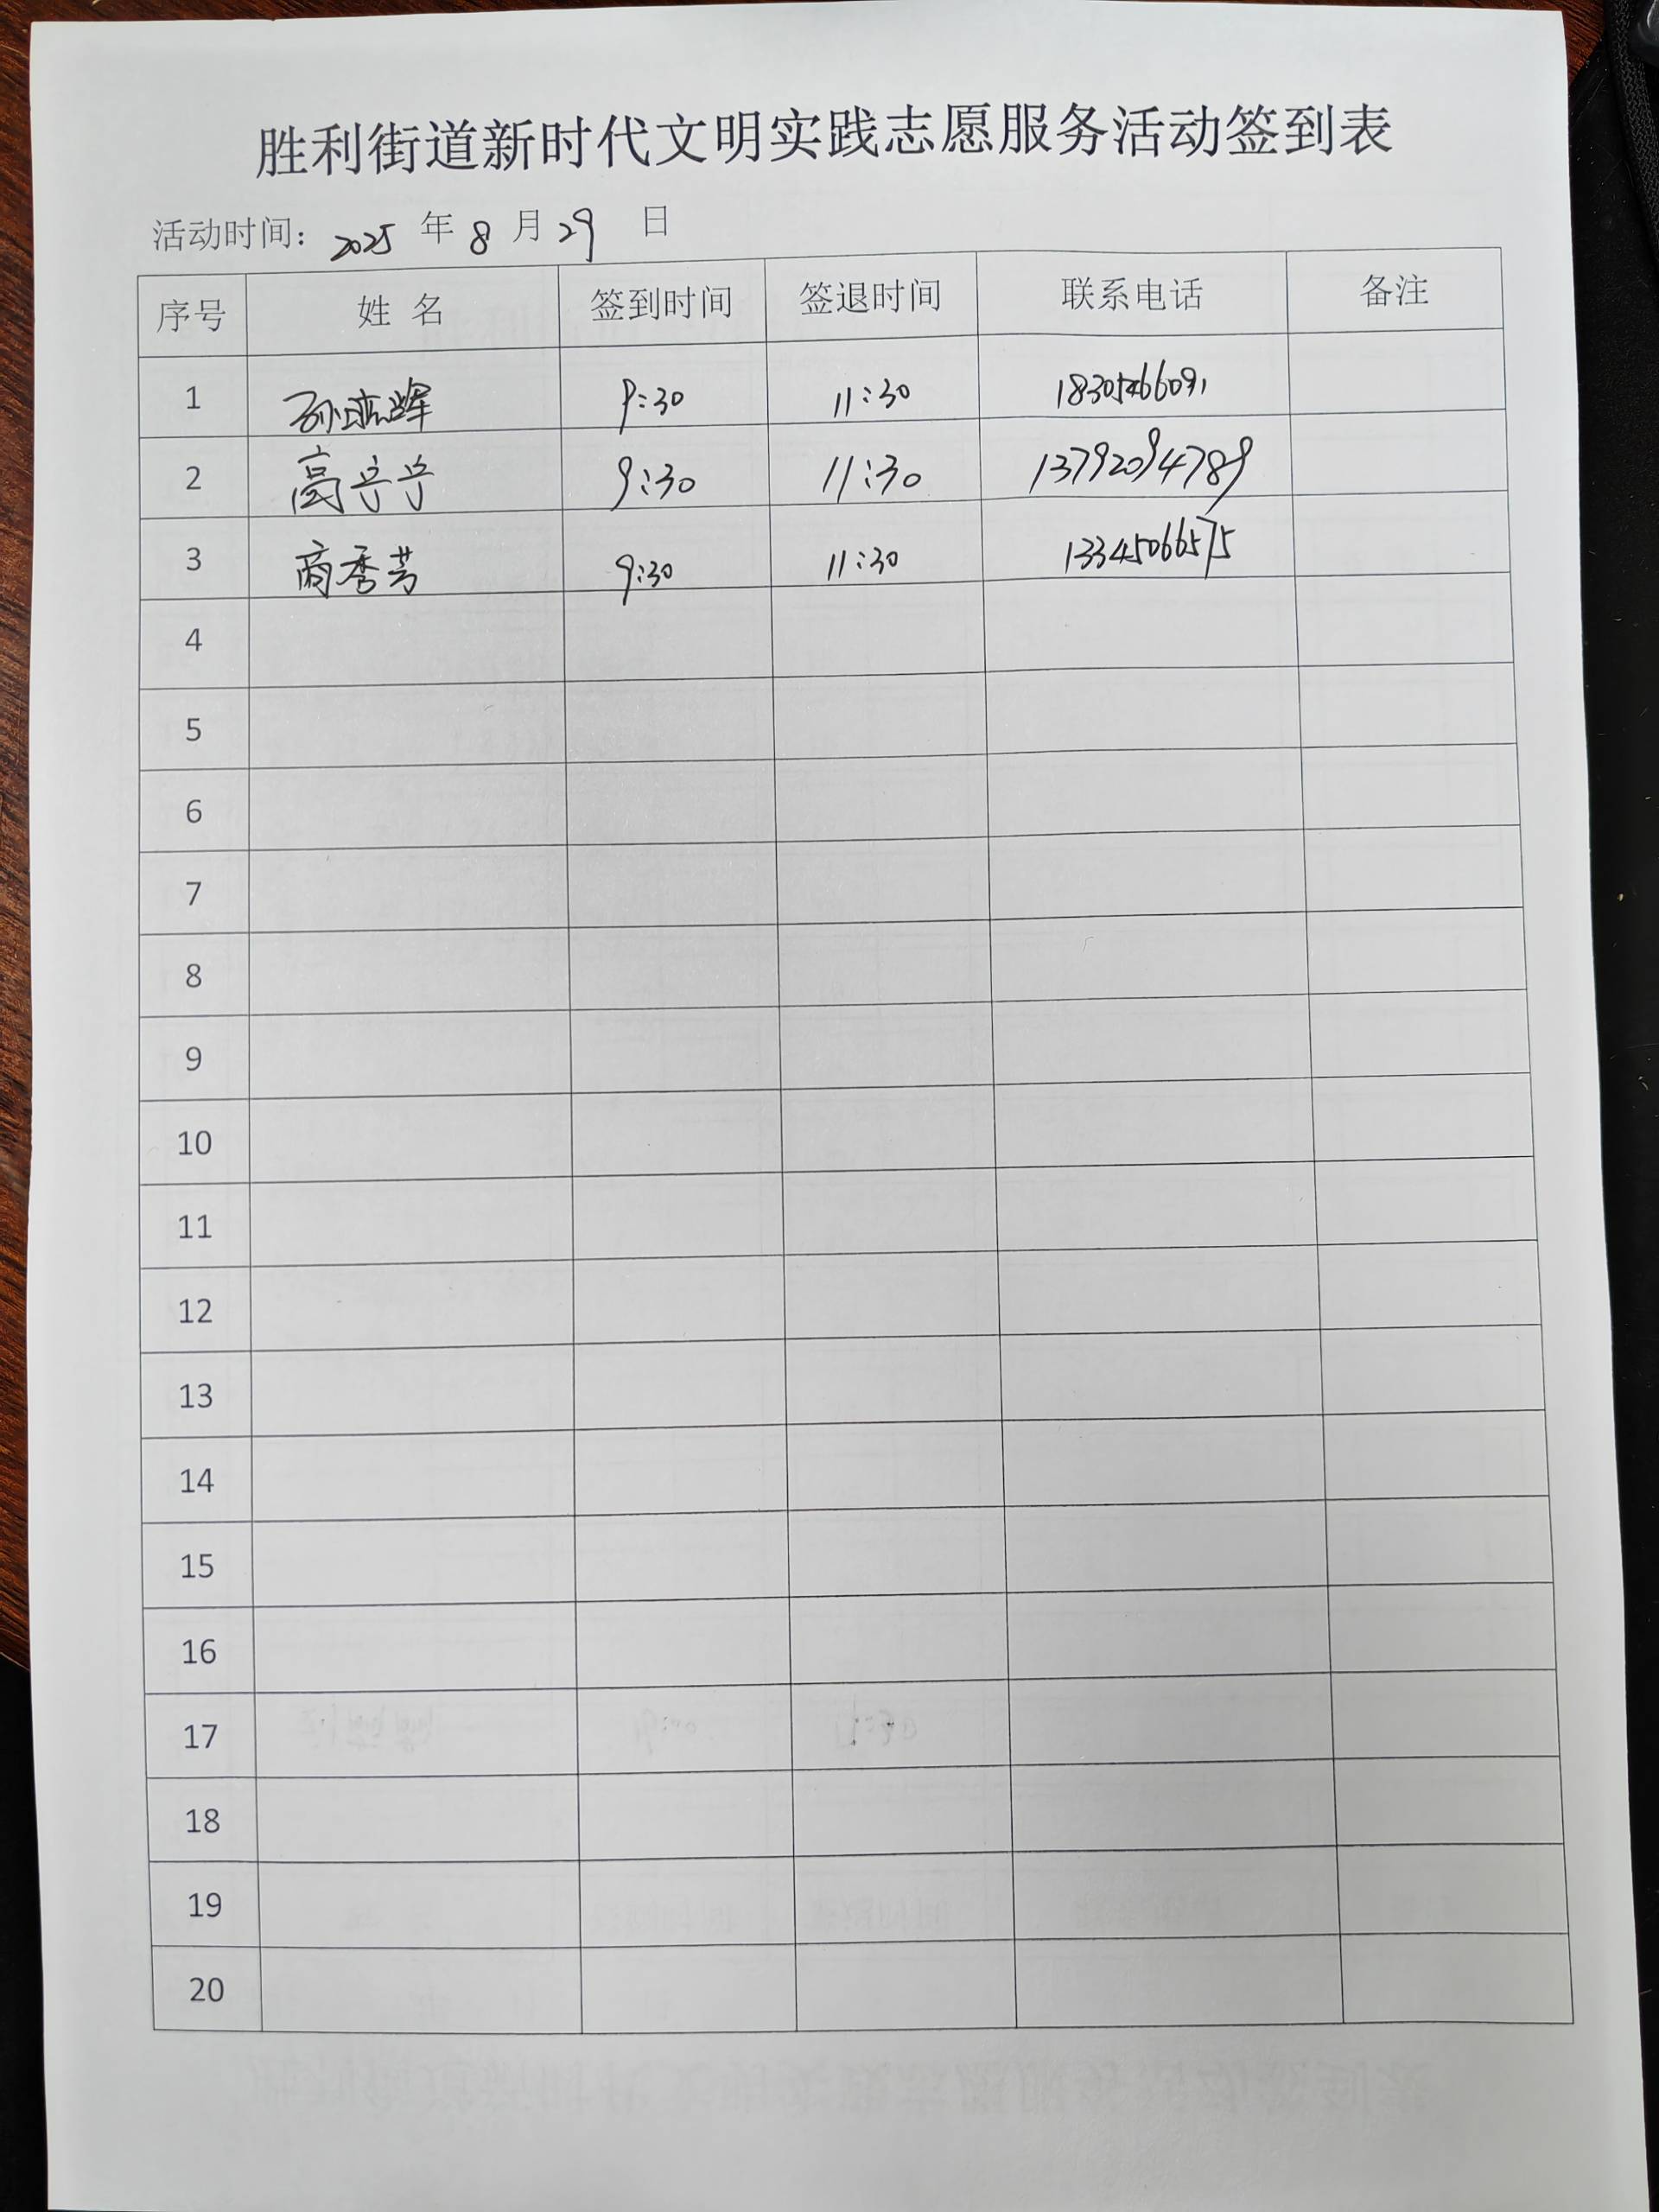 胜利街道新时代文明实践志愿服务活动签到表
活动时间: 2025 年 8 月 29 日
序号 姓 名 签到时间 签退时间 联系电话 备注
1 9:30 11:30
2 高宁宁 9:30 11:30 13792094789
3 商秀芳 9:30 11:30 13345066575
4
5
6
7
8
9
10
11
12
13
14
15
16
17
18
19
20